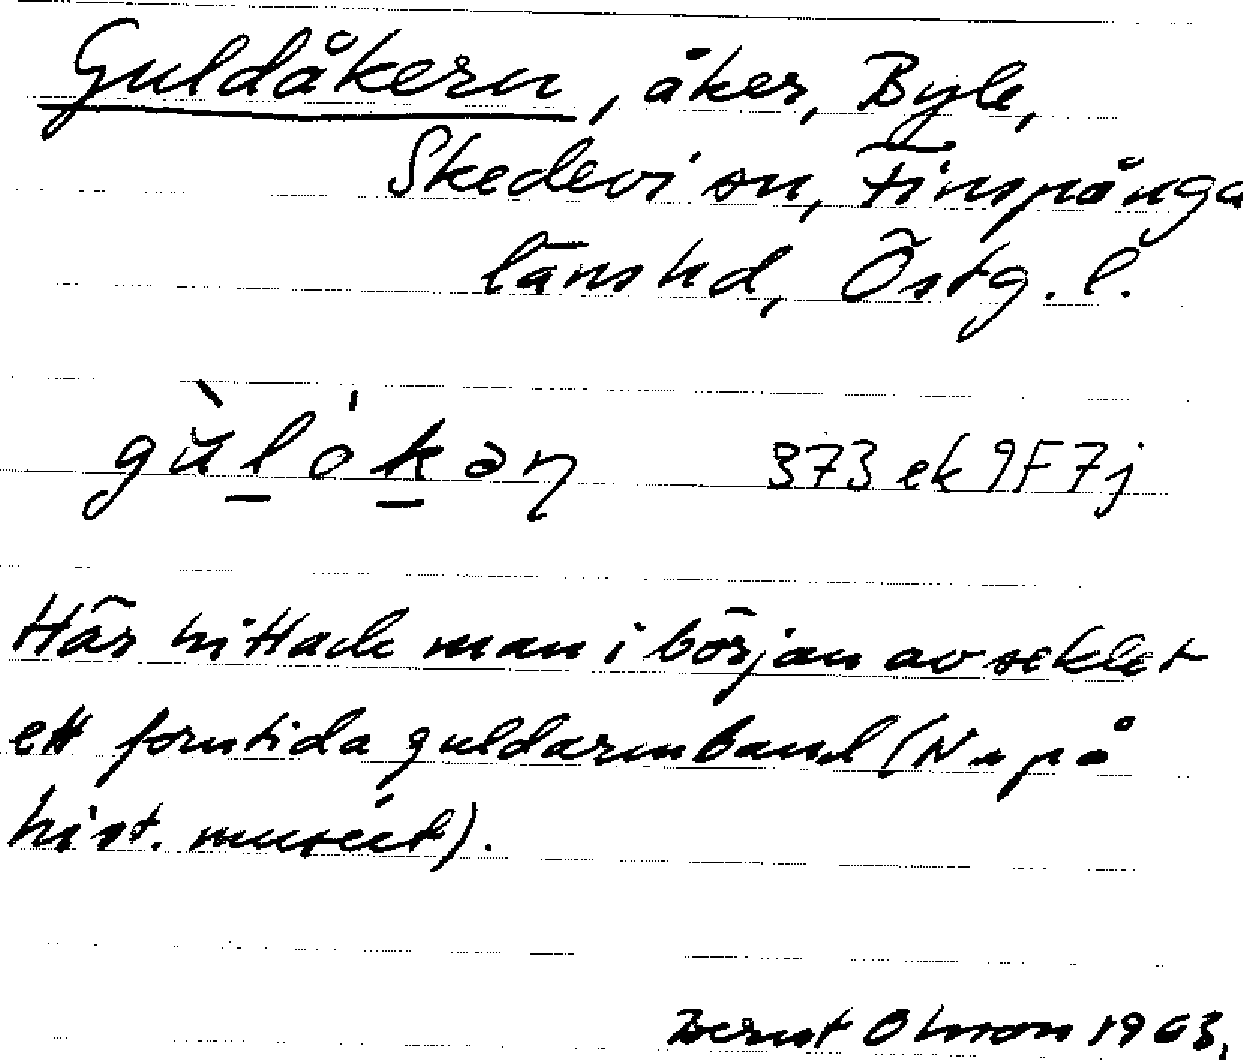 Guldåkern, åker, Byle,
Skedevi sn, Finspånga
länshd, Östg. l.
gù̱lókən 373 ek 9F7j
Här hittade man i början av seklet
ett forntida guldarmband (Nu på
hist. muséet).
Bernt Olsson 1963.